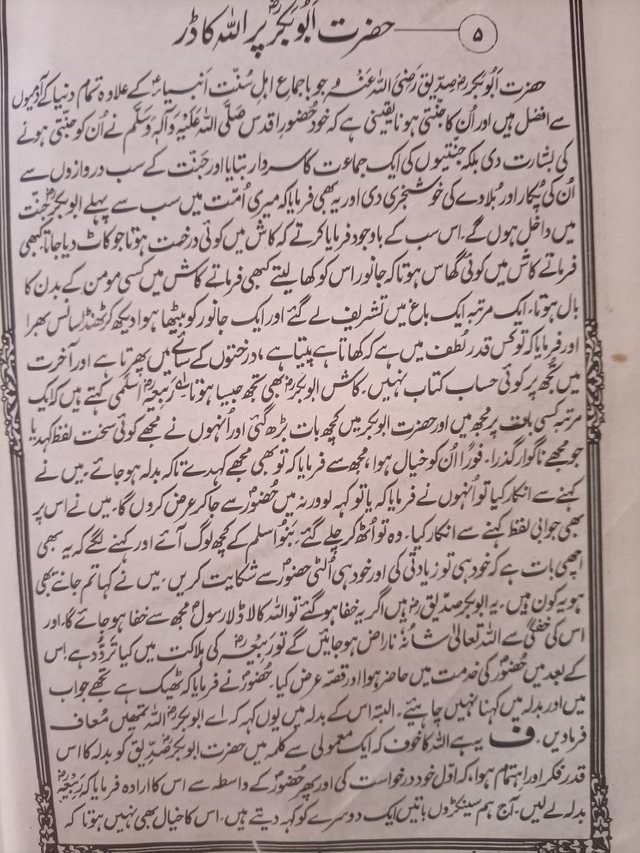 ۵ حضرت ابوبکرؓ پر اللہ کا ڈر
حضرت ابوبکرؓ صدیق رَضِیَ اللہُ عَنہُ جو باجماع اہلِ سُنّت اَنبیاءؑ کے علاوہ تمام دنیا کے آدمیوں
سے افضل ہیں اور اُن کا جنّتی ہونا یقینی ہے کہ خود حضورِ اقدس صَلَّی اللہُ عَلَیْہِ وَآلِہٖ وَسَلَّم نے اُن کو جنّتی ہونے
کی بشارت دی بلکہ جنّتیوں کی ایک جماعت کا سردار بتایا اور جنّت کے سب دروازوں سے
اُن کی پُکار اور بُلاوے کی خوشخبری دی اور یہ بھی فرمایا کہ میری اُمّت میں سب سے پہلے ابوبکرؓ جنّت
میں داخل ہوں گے۔ اس سب کے باوجود فرمایا کرتے کہ کاش میں کوئی درخت ہوتا جو کاٹ دیا جاتا کبھی
فرماتے کاش میں کوئی گھاس ہوتا کہ جانور اس کو کھا لیتے کبھی فرماتے کاش میں کسی مومن کے بدن کا
بال ہوتا۔ ایک مرتبہ ایک باغ میں تشریف لے گئے اور ایک جانور کو بیٹھا ہوا دیکھ کر ٹھنڈا سانس بھرا
اور فرمایا کہ تو کس قدر لُطف میں ہے کہ کھاتا ہے پیتا ہے، درختوں کے سائے میں پھرتا ہے اور آخرت
میں تجھ پر کوئی حساب کتاب نہیں۔ کاش ابوبکرؓ بھی تجھ جیسا ہوتا۔ ربیعہؓ اسلمی کہتے ہیں کہ ایک
مرتبہ کسی بات پر مجھ میں اور حضرت ابوبکرؓ میں کچھ بات بڑھ گئی اور اُنہوں نے مجھے کوئی سخت لفظ کہہ دیا
جو مجھے ناگوار گذرا۔ فوراً اُن کو خیال ہوا، مجھ سے فرمایا کہ تو بھی مجھے کہدے تاکہ بدلہ ہو جائے۔ میں نے
کہنے سے انکار کیا تو اُنہوں نے فرمایا کہ یا تو کہہ لو ورنہ میں حضورؐ سے جا کر عرض کروں گا۔ میں نے اس پر
بھی جوابی لفظ کہنے سے انکار کیا۔ وہ تو اُٹھ کر چلے گئے۔ بَنُو اسلم کے کچھ لوگ آئے اور کہنے لگے کہ یہ بھی
اچھی بات ہے کہ خود ہی تو زیادتی کی اور خود ہی اُلٹی حضورؐ سے شکایت کریں۔ میں نے کہا تم جانتے بھی
ہو یہ کون ہیں۔ یہ ابوبکر صدّیقؓ ہیں اگر یہ خفا ہو گئے تو اللہ کا لاڈلا رسولؐ مجھ سے خفا ہو جائے گا، اور
اس کی خفگی سے اللہ تعالٰی شانُہٗ ناراض ہو جائیں گے تو ربیعہؓ کی ہلاکت میں کیا تردُّد ہے۔ اس
کے بعد میں حضورؐ کی خدمت میں حاضر ہوا اور قصّہ عرض کیا۔ حضورؐ نے فرمایا کہ ٹھیک ہے تجھے جواب
میں اور بدلہ میں کہنا نہیں چاہئے۔ البتہ اس کے بدلہ میں یوں کہہ کہ اے ابوبکرؓ اللہ تمھیں مُعاف
فرما دیں۔ ف یہ ہے اللہ کا خوف کہ ایک معمولی سے کلمہ میں حضرت ابوبکر صدّیقؓ کو بدلہ کا اس
قدر فکر اور اہتمام ہوا، کہ اوّل خود درخواست کی اور پھر حضورؐ کے واسطہ سے اس کا ارادہ فرمایا کہ ربیعہؓ
بدلہ لے لیں۔ آج ہم سینکڑوں باتیں ایک دوسرے کو کہہ دیتے ہیں۔ اس کا خیال بھی نہیں ہوتا کہ